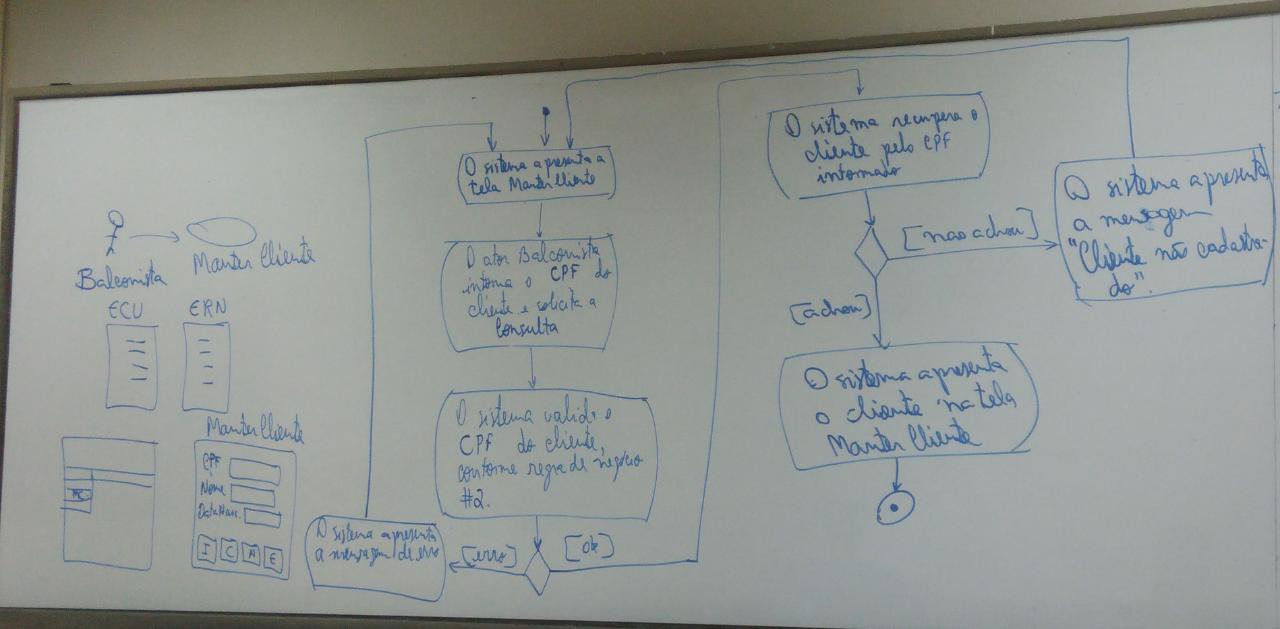 Balconista
Manter Cliente
ECU
ERN
MC
Manter Cliente
CPF
Nome
Data Nasc.
I C A E
O sistema apresenta a
tela Manter Cliente
O ator Balconista
informa o CPF do
cliente e solicita a
Consulta
O sistema valida o
CPF do cliente,
conforme regra de negócio
#2.
[erro]
[ok]
O sistema apresenta
a mensagem de erro
O sistema recupera o
cliente pelo CPF
informado
[não achou]
[achou]
O sistema apresenta
a mensagem
"Cliente não cadastra-
do".
O sistema apresenta
o cliente na tela
Manter Cliente